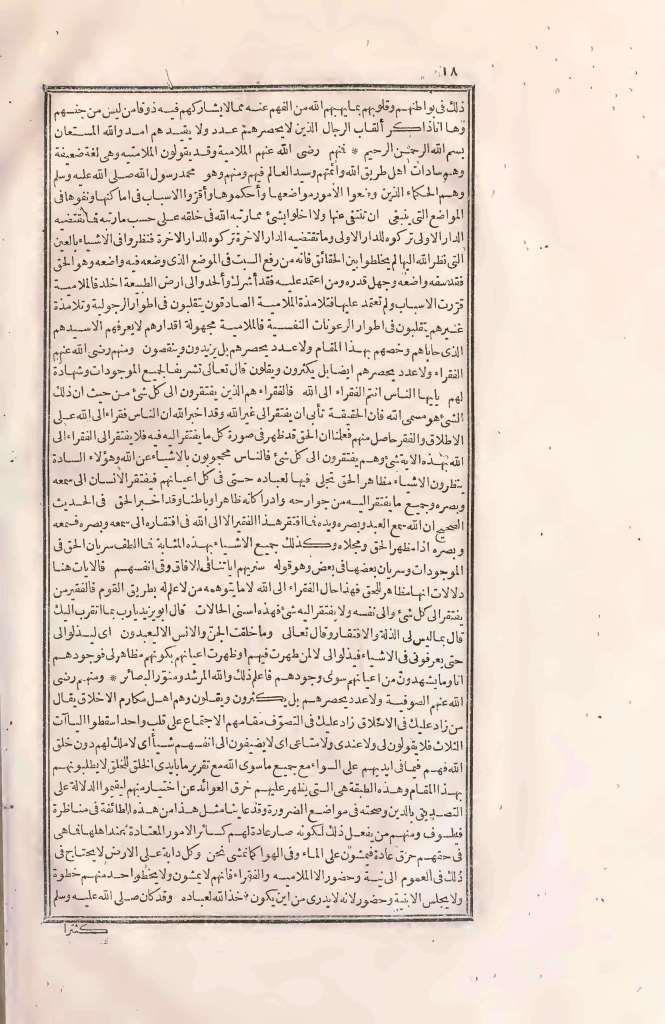 ١٨
ذلك فى بواطنهم وقلوبهم بما يهبهم الله من الفهم عنه مما لا يشاركهم فيه ذوقا من ليس من جنسهم
وها انا ذاكر ألقاب الرجال الذين لا يحصرهم عدد ولا يقيدهم امد والله المستعان
بسم الله الرحمن الرحيم * فمنهم رضى الله عنهم الملامية وقد يقولون الملامتيه وهى لغة ضعيفة
وهم سادات اهل طريق الله وأئمتهم وسيد العالم فيهم ومنهم وهو محمد رسول الله صلى الله عليه وسلم
وهم الحكماء الذين وضعوا الأمور مواضعها وأحكموها وأقروا الاسباب فى اماكنها ونفوها فى
المواضع التى ينبغى ان تنتفى عنها ولا اخلوا بشئ مما رتبه الله فى خلقه على حسب ما رتبه فما تقتضيه
الدار الاولى تركوه للدار الاولى وما تقتضيه الدار الاخرة تركوه للدار الاخرة فنظروا فى الاشياء بالعين
التى نظر الله اليها لم يخلطوا بين الحقائق فانه من رفع السبب فى الموضع الذى وضعه فيه واضعه وهو الحق
فقد سفه واضعه وجهل قدره ومن اعتمد عليه فقد أشرك وألحد والى ارض الطبيعة اخلد فالملامية
قررت الاسباب ولم تعتمد عليها فتلامذة الملامية الصادقون يتقلبون فى اطوار الرجولية وتلامذة
غيرهم يتقلبون فى اطوار الرعونات النفسية فالملامية مجهولة اقدارهم لا يعرفهم الا سيدهم
الذى حاباهم وخصهم بهذا المقام ولا عدد يحصرهم بل يزيدون وينقصون ومنهم رضى الله عنهم
الفقراء ولا عدد يحصرهم ايضا بل يكثرون ويقلون قال تعالى تشريفا لجميع الموجودات وشهادة
لهم يايها الناس انتم الفقراء الى الله فالفقراء هم الذين يفتقرون الى كل شئ من حيث ان ذلك
الشئ هو مسمى الله فان الحقيقة تأبى ان يفتقر الى غير الله وقد اخبر الله ان الناس فقراء الى الله على
الاطلاق والفقر حاصل منهم فعلمنا ان الحق قد ظهر فى صورة كل ما يفتقر اليه فيه فلا يفتقر الى الفقراء الى
الله بهذه الاية شئ وهم يفتقرون الى كل شئ فالناس محجوبون بالاشياء عن الله وهؤلاء السادة
ينظرون الاشياء مظاهر الحق تجلى فيها لعباده حتى فى كل اعيانهم فيفتقر الانسان الى سمعه
وبصره وجميع ما يفتقر اليه من جوارحه وادراكاته ظاهرا وباطنا وقد اخبر الحق فى الحديث
الصحيح ان الله سمع العبد وبصره ويده فما افتقر هذا الفقير الا الى الله فى افتقاره الى سمعه وبصره فسمعه
وبصره اذا مظهر الحق ومجلاه وكذلك جميع الاشياء بهذه المثابة فما الطف سريان الحق فى
الموجودات وسريان بعضها فى بعض وهو قوله سنريهم اياتنا فى الافاق وفى انفسهم فالايات هنا
دلالات انها مظاهر للحق فهذا حال الفقراء الى الله لا ما يتوهمه من لا علم له بطريق القوم فالفقير من
يفتقر الى كل شئ والى نفسه ولا يفتقر اليه شئ فهذه اسنى الحالات قال ابو يزيد يارب بما اتقرب اليك
قال بما ليس لى الذلة والافتقار وقال تعالى وما خلقت الجن والانس الا ليعبدون اى ليذلوا لى
حتى يعرفونى فى الاشياء فيذلوا لى لا لمن ظهرت فيهم او ظهرت اعيانهم بكونهم مظاهر لى فوجودهم
انا وما يشهدون من اعيانهم سوى وجودهم فاعلم ذلك والله المرشد ومنور البصائر * ومنهم رضى
الله عنهم الصوفية ولا عدد يحصرهم بل يكثرون ويقلون وهم اهل مكارم الاخلاق يقال
من زاد عليك فى الاخلاق زاد عليك فى التصوف مقامهم الاجتماع على قلب واحد اسقطوا اليآآت
الثلاث فلا يقولون لى ولا عندى ولا متاعى اى لا يضيفون الى انفسهم شيأ أى لا ملك لهم دون خلق
الله فهم فيما فى ايديهم على السواء مع جميع ما سوى الله مع تقرير ما بايدى الخلق للخلق لا يطلبونهم
بهذا المقام وهذه الطبقة هى التى يظهر عليهم خرق العوائد عن اختيار منهم ليقيموا الدلالة على
التصديق بالدين وصحته فى مواضع الضرورة وقد عاينا مثل هذا من هذه الطائفة فى مناظرة
فيلسوف ومنهم من يفعل ذلك لكونه صار عادة لهم كسائر الامور المعتادة عند اهلها فما هى
فى حقهم خرق عادة فيمشون على الماء وفى الهوا كما نمشى نحن وكل دابة على الارض لا يحتاج فى
ذلك فى العموم الى نية وحضور الا الملاميه والفقراء فانهم لا يمشون ولا يخطو احد منهم خطوة
ولا يجلس الا بنية وحضور لانه لا يدرى من اين يكون اخذ الله لعباده وقد كان صلى الله عليه وسلم
كثيرا